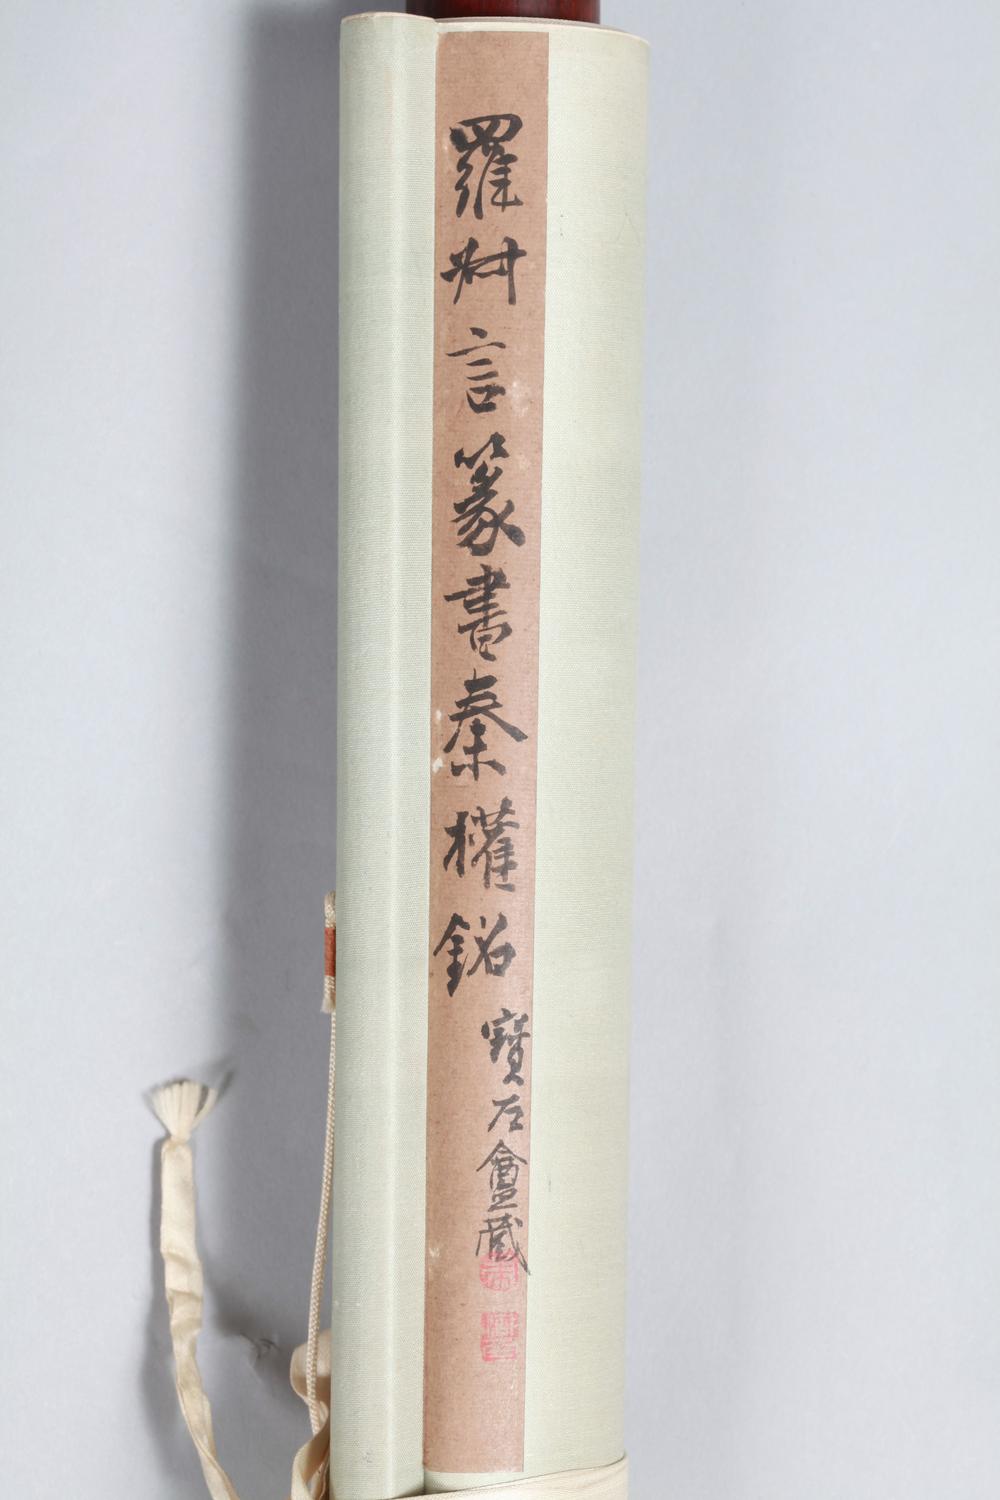 羅叔言篆書秦權銘
寶左盦藏